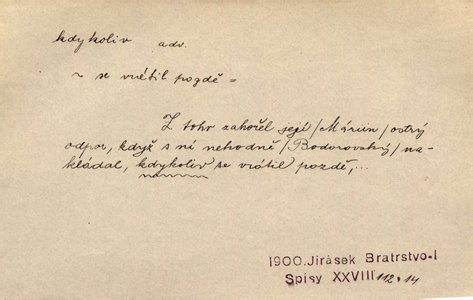 kdykoliv adv.
~ se vrátil pozdě =
Z toho zahořel její /Máriin/ ostrý
odpor, když s ní nehodně /Bodorovský/ na-
kládal, kdykoliv se vrátil pozdě,...
1900.Jirásek Bratrstvo-I
Spisy XXVIII 112,14